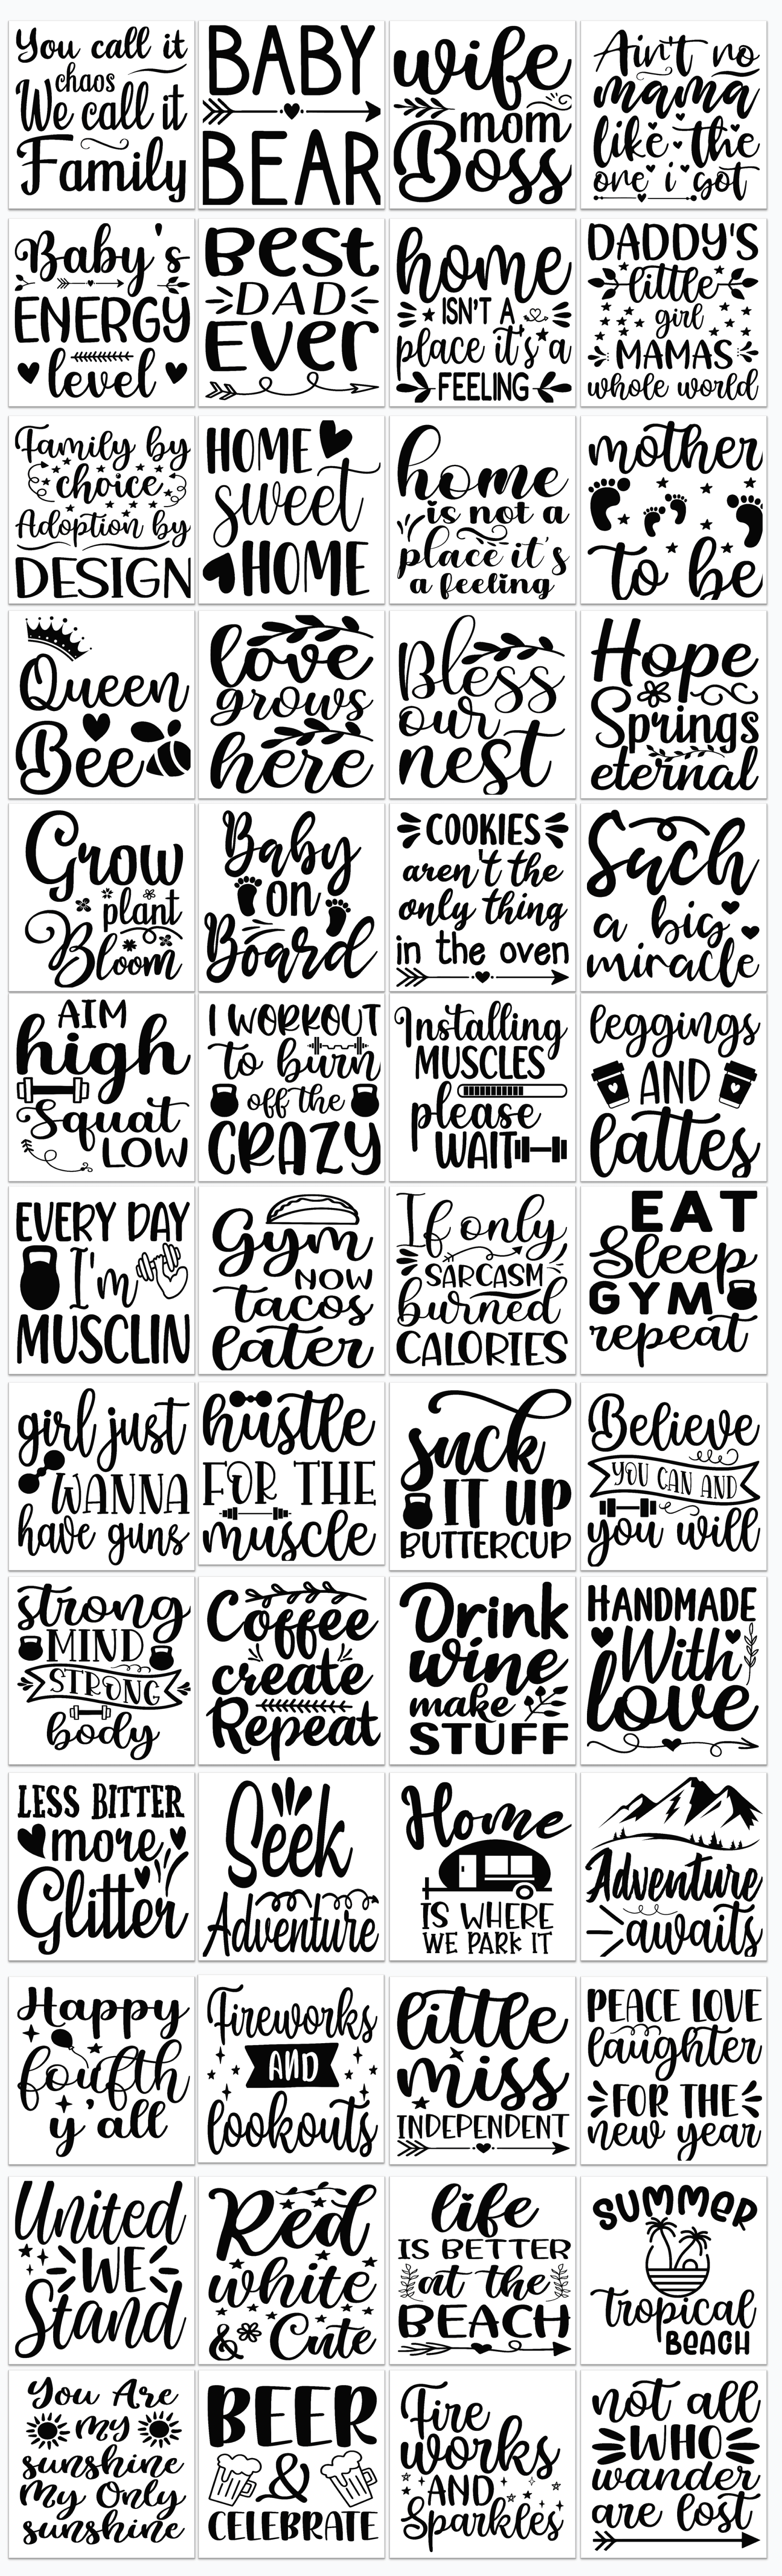 You call it
chaos
We call it
Family
BABY
BEAR
wife
mom
Boss
Ain't no
mama
like the
one i got
Baby's
ENERGY
level
Best
DAD
Ever
home
ISN'T A
place it's a
FEELING
DADDY'S
little
girl
MAMAS
whole world
Family by
choice
Adoption by
DESIGN
HOME
sweet
HOME
home
is not a
place it's
a feeling
mother
to be
Queen
Bee
love
grows
here
Bless
our
nest
Hope
Springs
eternal
Grow
plant
Bloom
Baby
on
Board
COOKIES
aren't the
only thing
in the oven
Such
a big
miracle
AIM
high
Squat
LOW
I WORKOUT
to burn
off the
CRAZY
Installing
MUSCLES
please
WAIT
leggings
AND
lattes
EVERY DAY
I'm
MUSCLIN
Gym
NOW
tacos
later
If only
SARCASM
burned
CALORIES
EAT
Sleep
GYM
repeat
girl just
WANNA
have guns
hustle
FOR THE
muscle
suck
IT UP
BUTTERCUP
Believe
YOU CAN AND
you will
strong
MIND
STRONG
body
Coffee
create
Repeat
Drink
wine
make
STUFF
HANDMADE
With
love
LESS BITTER
more
Glitter
Seek
Adventure
Home
IS WHERE
WE PARK IT
Adventure
awaits
Happy
foufth
y'all
Fireworks
AND
lookouts
little
miss
INDEPENDENT
PEACE LOVE
laughter
FOR THE
new year
United
WE
Stand
Red
white
& Cute
life
IS BETTER
at the
BEACH
SUMMER
tropical
BEACH
You Are
my
sunshine
My Only
sunshine
BEER
&
CELEBRATE
Fire
works
AND
Sparkles
not all
WHO
wander
are lost